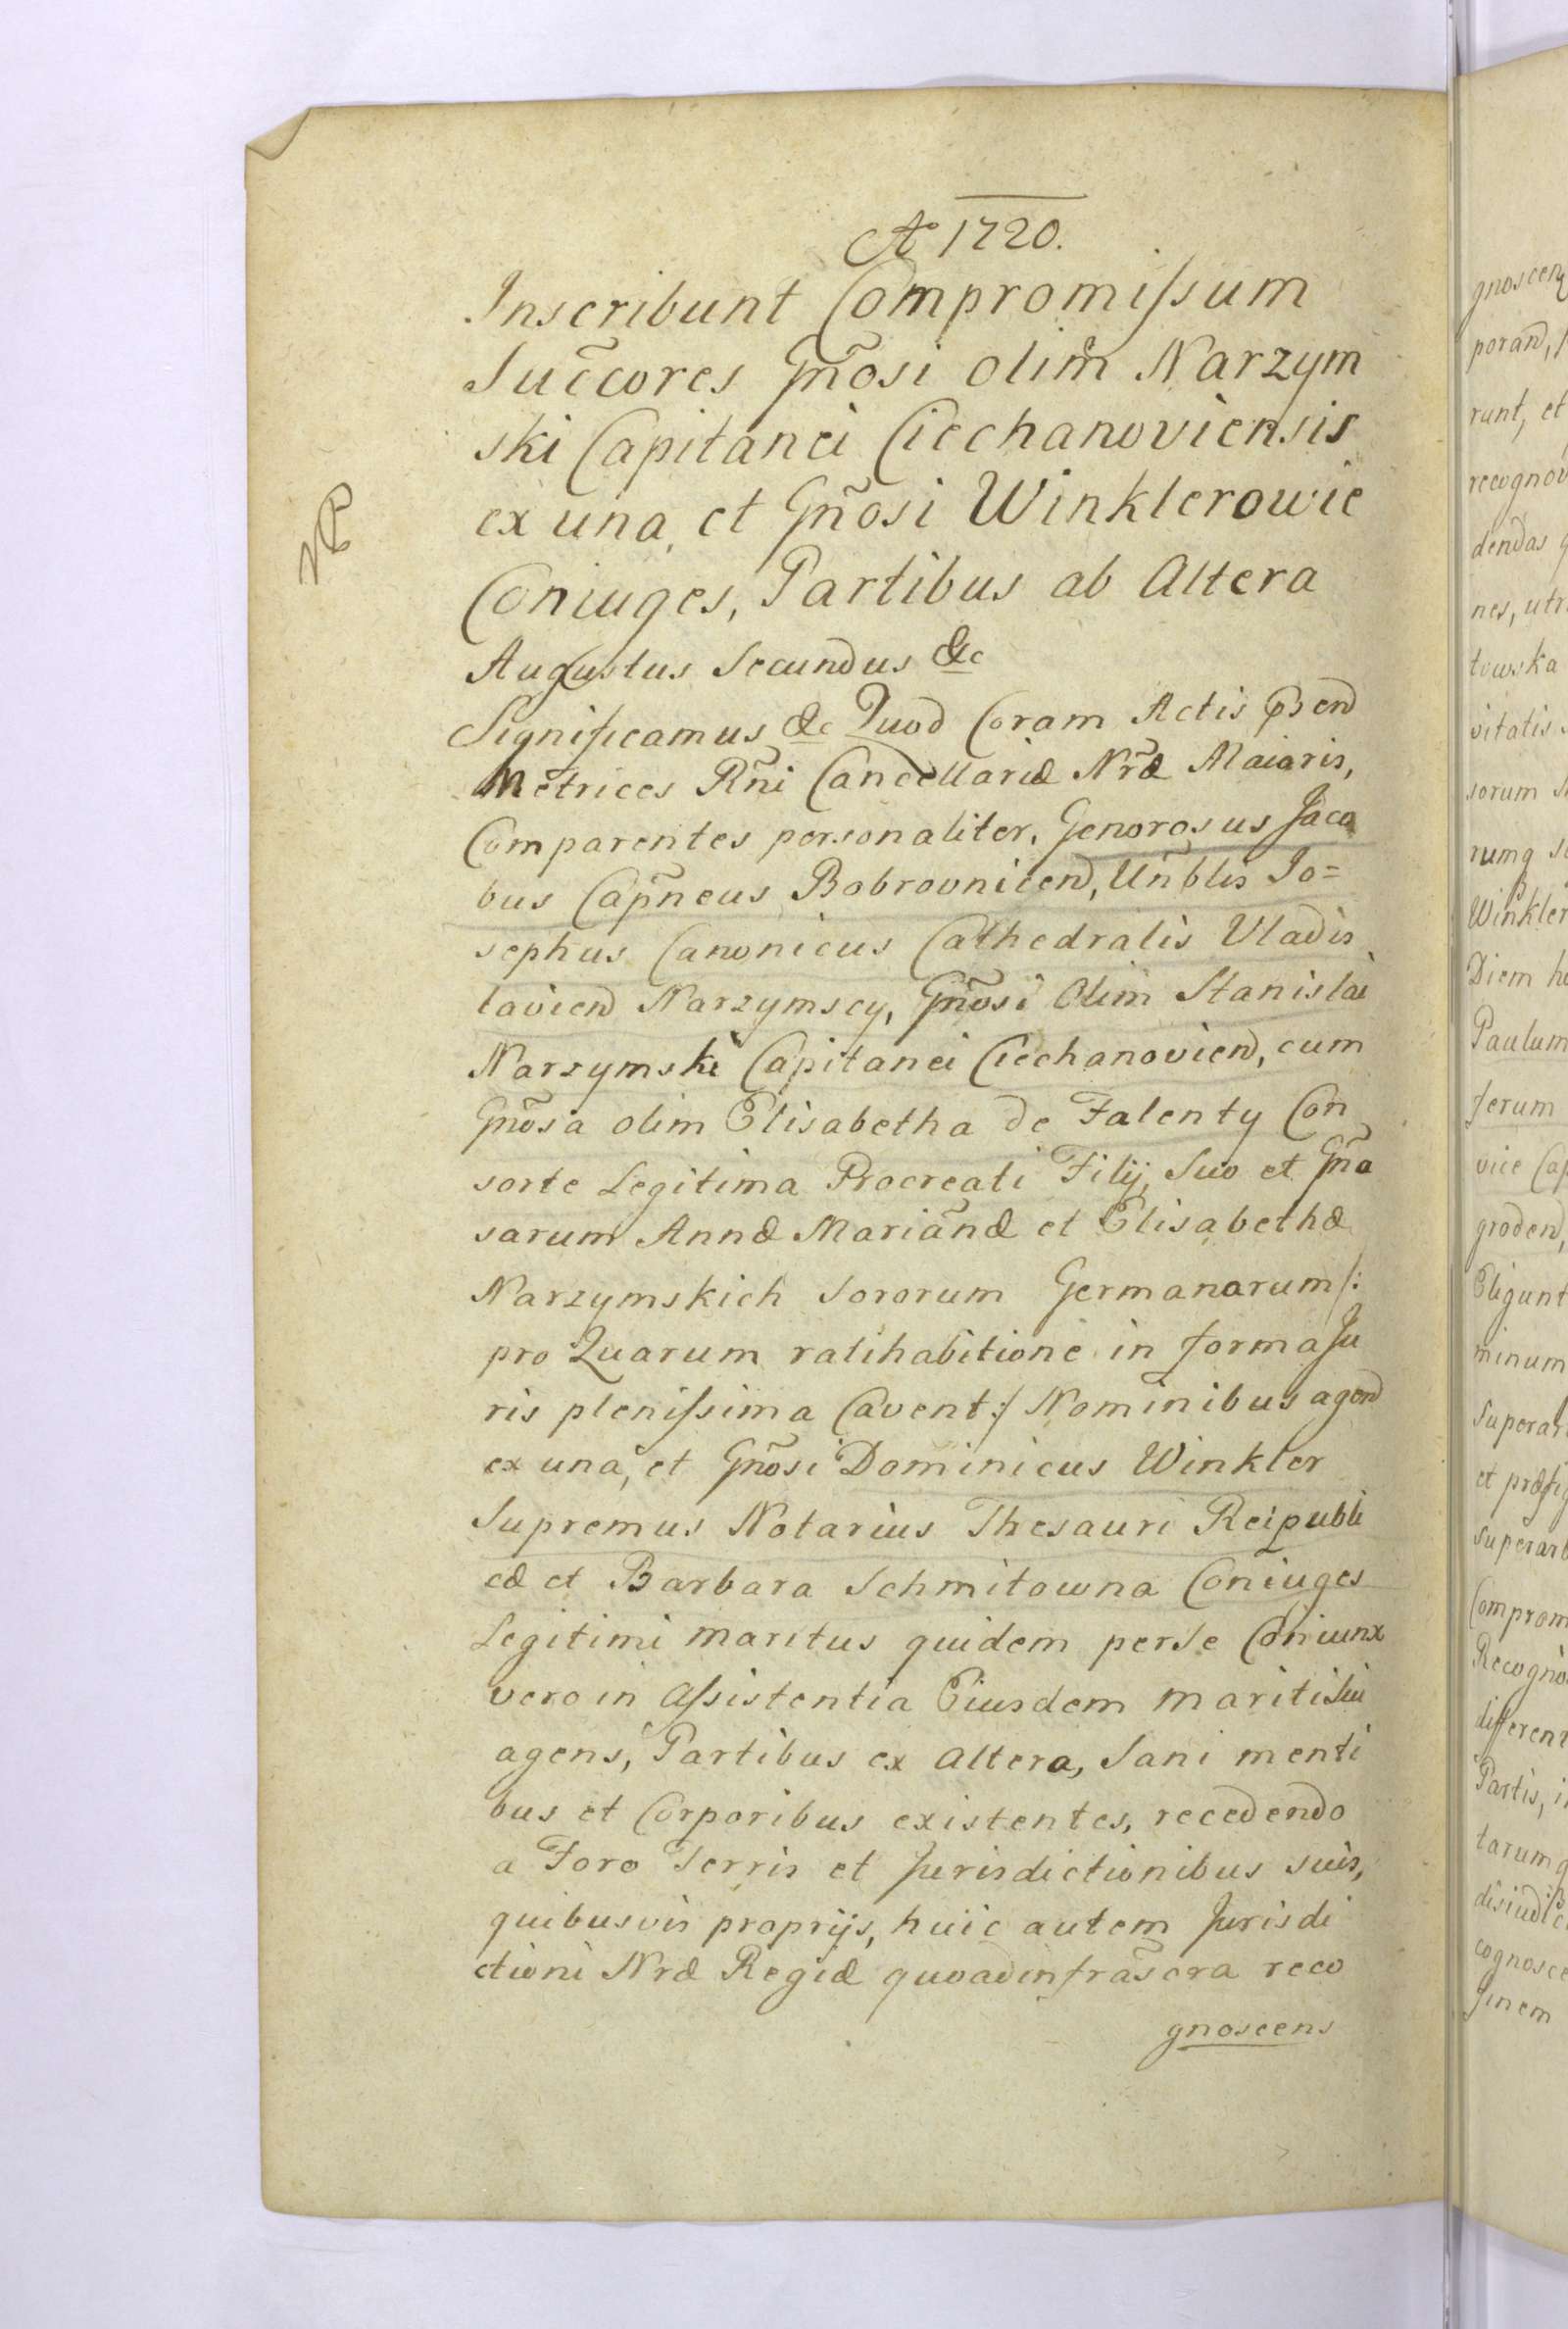 Aͦ 1720.
Inscribunt Compromissum
Suc̃cores Gn̄osi olim̃ Narzym
ski Capitanei Ciechanoviensis
ex una, et Gn̄osi Winklerowie
Coniuges, Partibus ab Altera
Augustus Secundus &c
Significamus &c Quod Coram Actis
Metrices Rn̄i Cancellariæ Nr̄æ Maioris,
Comparentes personaliter, Generosus Jaco
bus Cap̄neus Bobrovnicen, Un̄blis Jo=
sephus Canonicus Cathedralis Uladis
lavien Narzymscy, Gn̄osi Olim Stanislai
Narzymski Capitanei Ciechanovien, cum
Gn̄osa olim Elisabetha de Falenty Con
sorte Legitima Procreati Filij, Suo et Gn̄o
sarum Annæ Mariãnæ et Elisabethæ
Narzymskich Sororum Germanarum /:
pro Quarum ratihabitione in forma Ju
ris plenissima Cavent :/ Nominibus agen
ex una, et Gn̄osi Dominicus Winkler
Supremus Notarius Thesauri Reipubli
cæ et Barbara Schmitowna Coniuges
Legitimi maritus quidem per se Coniunx
vero in Assistentia Eiusdem mariti Sui
agens, Partibus ex Altera, Sani menti
bus et Corporibus existentes, recedendo
a Foro Terris et Jurisdictionibus suis,
quibusvis proprijs, huic autem Jurisdi
ctioni Nræ Regiæ quoad infrãscra reco
gnoscens
gnoscen
poran
runt, et
recognov
dendas
nes, utr
towska
vitatis
sorum
rumq
Winkler
Diem
Paulum
ferum
vice
groden,
Eligunt
minum
Superar
et
superar
Comprom
Recogno
different
Partis,
tarumq
cognosce
finem